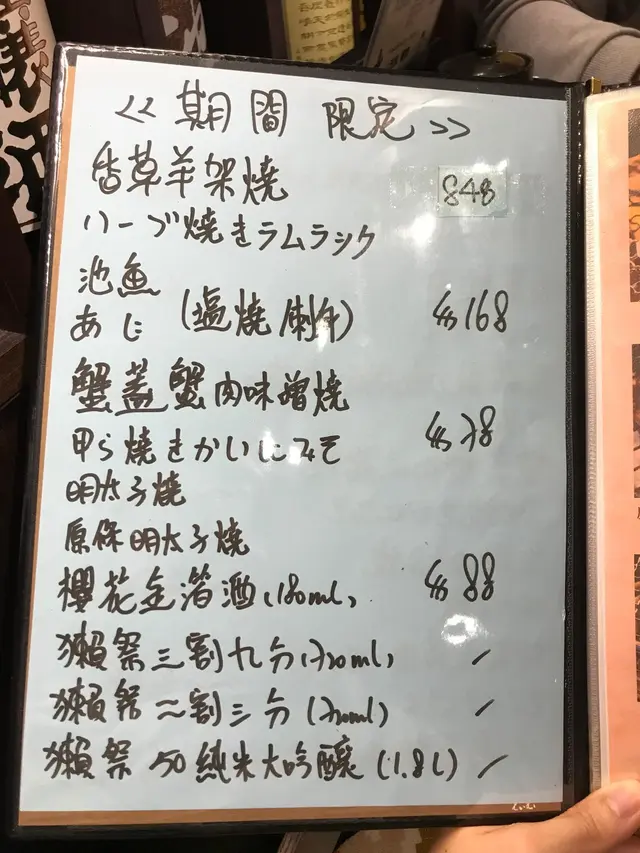 << 期間 限定 >>
香草羊架燒 $48
ハーブ焼きラムラック
池魚
あじ (塩燒/刺身) $168
蟹蓋蟹肉味增燒
甲ら焼きかいにみそ $78
明太子燒
原條明太子燒
櫻花金箔酒(180ml) $88
獺祭三割九分(720ml) /
獺祭二割三分(720ml) /
獺祭 50 純米大吟釀 (1.8L) /